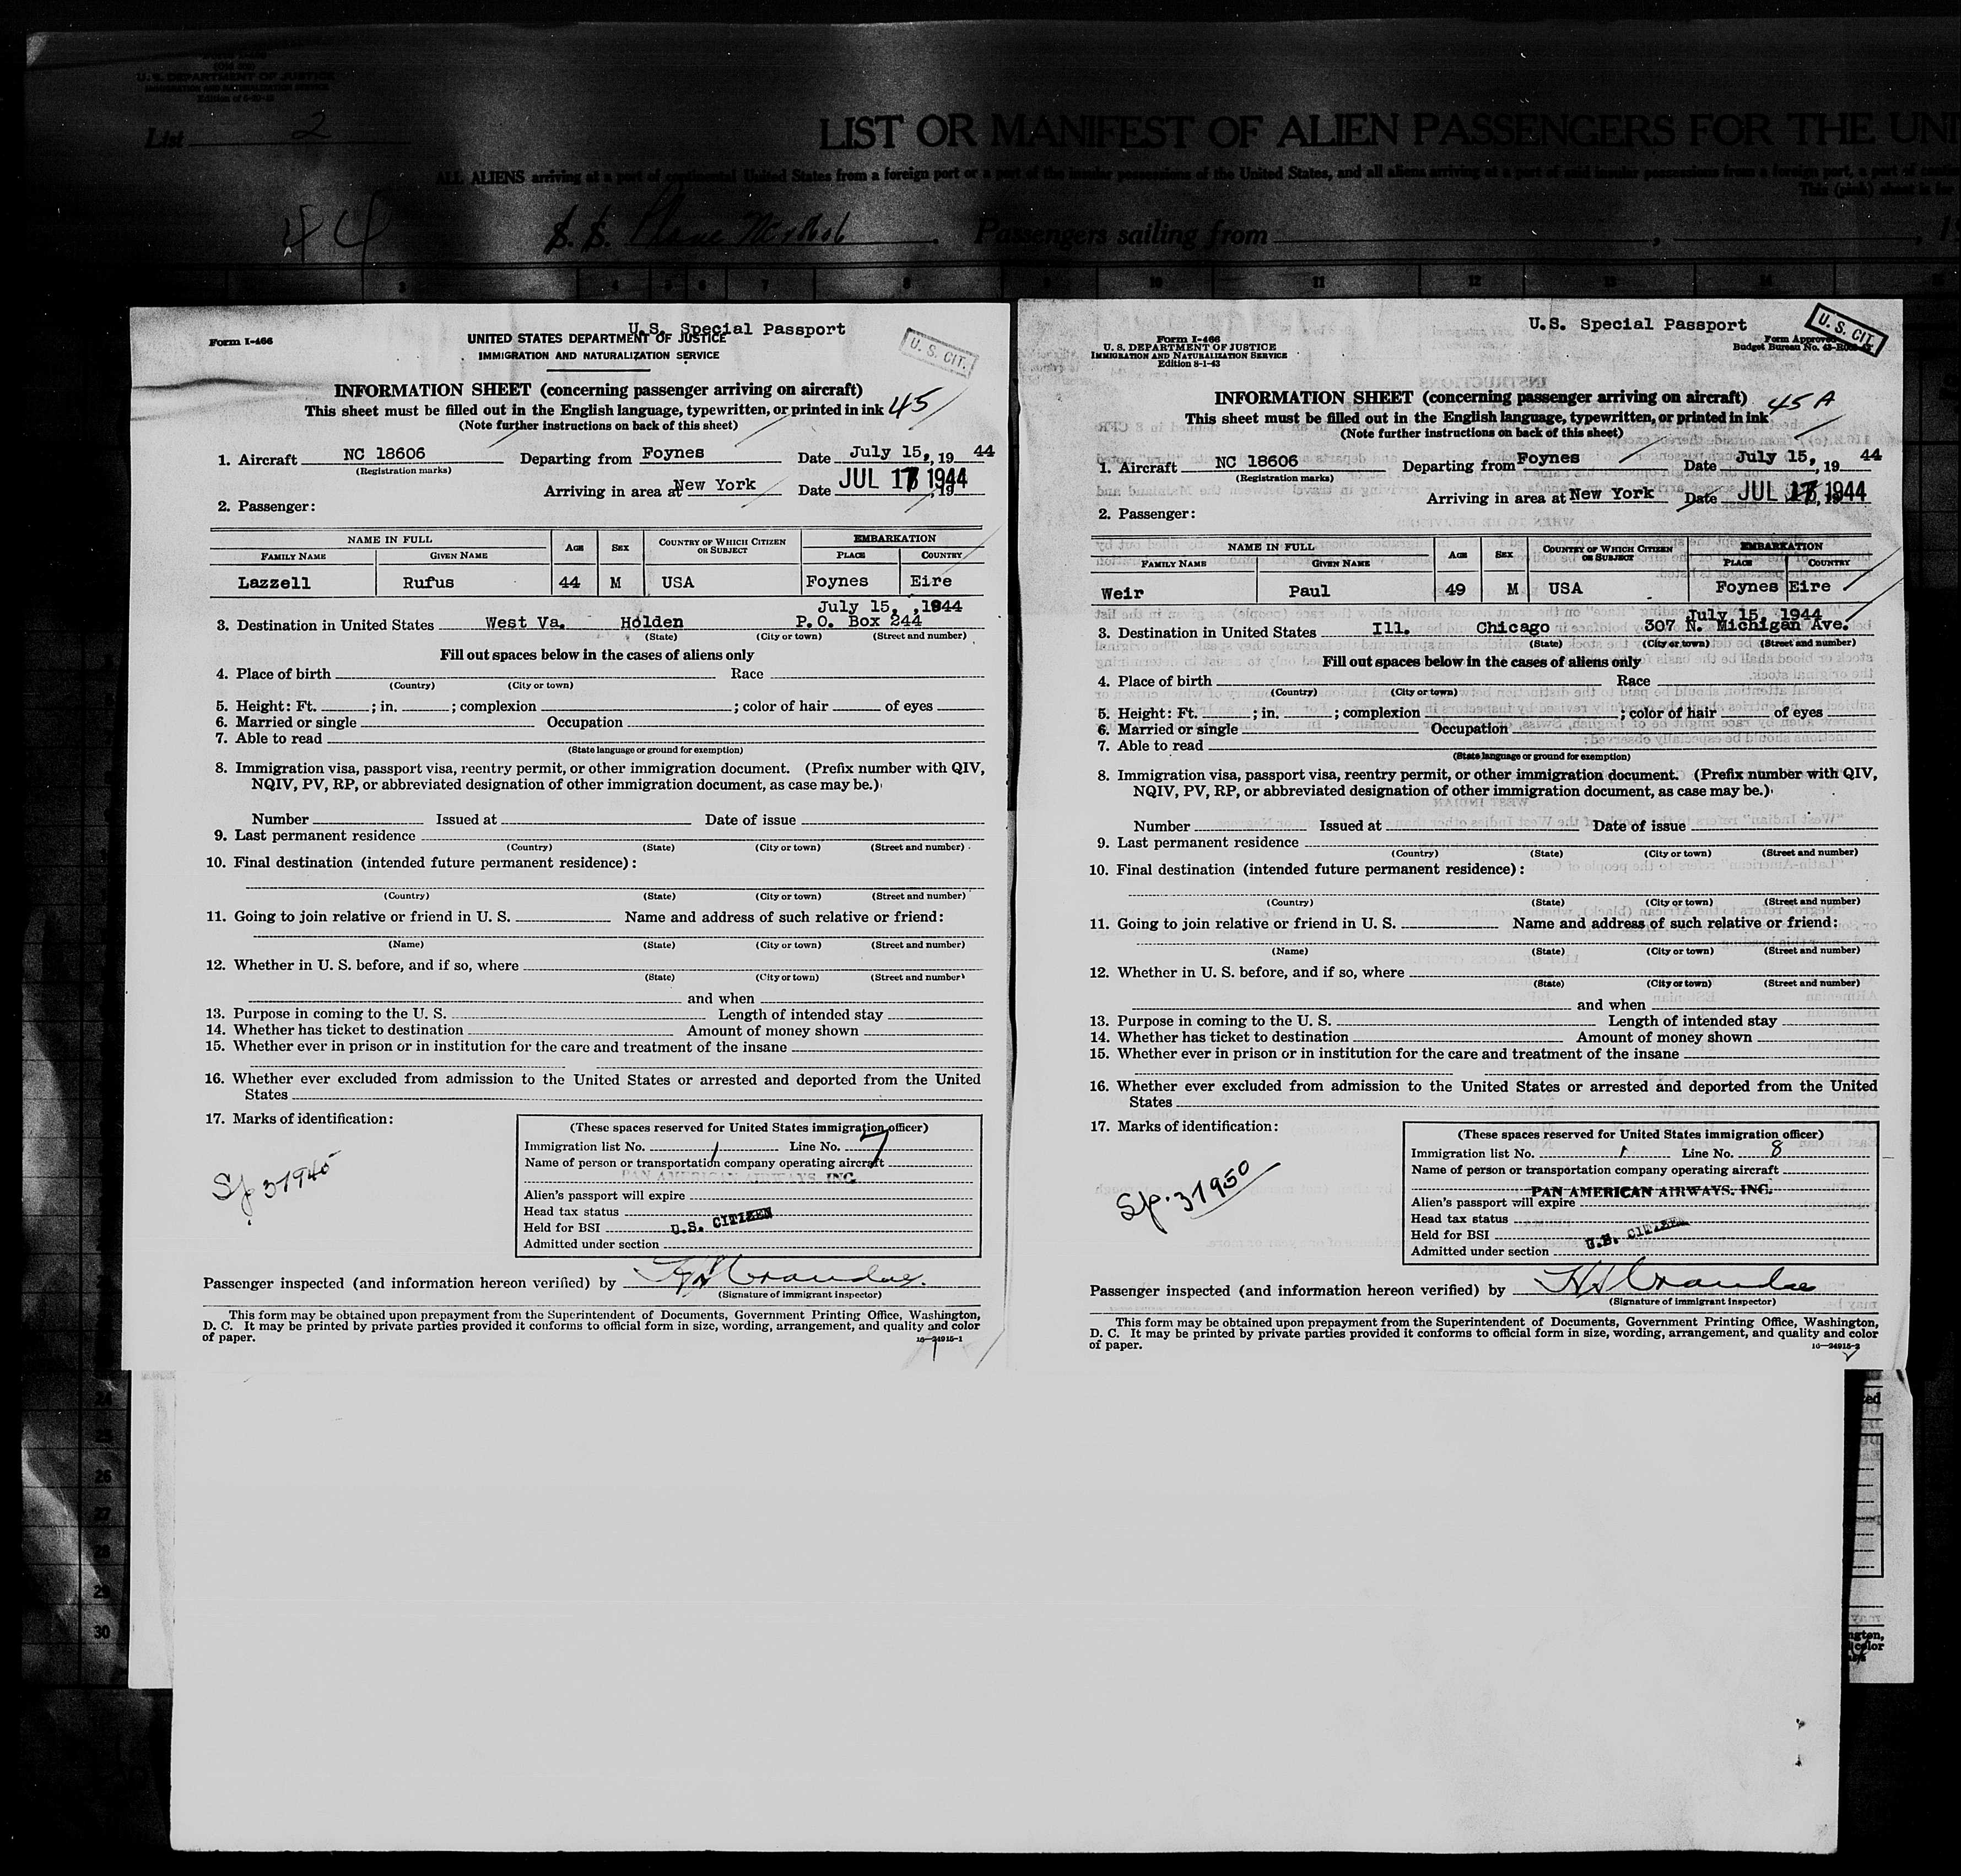 U. S. DEPARTMENT OF JUSTICE
IMMIGRATION AND NATURALIZATION SERVICE
List 2
LIST OR MANIFEST OF ALIEN PASSENGERS FOR THE UNI
ALL ALIENS arriving at a port of continental United States from a foreign port or a port of the insular possessions of the United States, and all aliens arriving at a port of said insular possessions from a foreign port, a port of
This (pink) sheet is for
44
S. S. Plane Passengers sailing from , , 19
3 4 5 6 7 8 10 11 12 13 14
U.S. Special Passport
Form I-466
UNITED STATES DEPARTMENT OF JUSTICE
U. S. CIT.
IMMIGRATION AND NATURALIZATION SERVICE
INFORMATION SHEET (concerning passenger arriving on aircraft)
This sheet must be filled out in the English language, typewritten, or printed in ink 45
(Note further instructions on back of this sheet)
1. Aircraft NC 18606 Departing from Foynes Date July 15, , 19 44
(Registration marks)
Arriving in area at New York Date JUL 17 1944 , 19
2. Passenger:
NAME IN FULL AGE SEX COUNTRY OF WHICH CITIZEN OR SUBJECT EMBARKATION
FAMILY NAME GIVEN NAME PLACE COUNTRY
Lazzell Rufus 44 M USA Foynes Eire
July 15, , 1944
3. Destination in United States West Va. Holden P.O. Box 244
(State) (City or town) (Street and number)
Fill out spaces below in the cases of aliens only
4. Place of birth Race
(Country) (City or town)
5. Height: Ft. ; in. ; complexion ; color of hair of eyes
6. Married or single Occupation
7. Able to read
(State language or ground for exemption)
8. Immigration visa, passport visa, reentry permit, or other immigration document. (Prefix number with QIV,
NQIV, PV, RP, or abbreviated designation of other immigration document, as case may be.)
Number Issued at Date of issue
9. Last permanent residence
(Country) (State) (City or town) (Street and number)
10. Final destination (intended future permanent residence):
(Country) (State) (City or town) (Street and number)
11. Going to join relative or friend in U. S. Name and address of such relative or friend:
(Name) (State) (City or town) (Street and number)
12. Whether in U. S. before, and if so, where
(State) (City or town) (Street and number)
and when
13. Purpose in coming to the U. S. Length of intended stay
14. Whether has ticket to destination Amount of money shown
15. Whether ever in prison or in institution for the care and treatment of the insane
16. Whether ever excluded from admission to the United States or arrested and deported from the United
States
17. Marks of identification:
(These spaces reserved for United States immigration officer)
Immigration list No. 1 Line No. 7
Name of person or transportation company operating aircraft
PAN AMERICAN AIRWAYS, INC.
Sp 37945
Alien's passport will expire
Head tax status
Held for BSI U.S. CITIZEN
Admitted under section
Passenger inspected (and information hereon verified) by
(Signature of immigrant inspector)
This form may be obtained upon prepayment from the Superintendent of Documents, Government Printing Office, Washington,
D. C. It may be printed by private parties provided it conforms to official form in size, wording, arrangement, and quality and color
of paper.
16—24915-1
U.S. Special Passport
U. S. CIT.
Form I-466
U. S. DEPARTMENT OF JUSTICE
IMMIGRATION AND NATURALIZATION SERVICE
Edition 8-1-43
Form Approved
Budget Bureau No.
INFORMATION SHEET (concerning passenger arriving on aircraft) 45 A
This sheet must be filled out in the English language, typewritten, or printed in ink
(Note further instructions on back of this sheet)
1. Aircraft NC 18606 Departing from Foynes Date July 15, , 19 44
(Registration marks)
Arriving in area at New York Date JUL 17 1944
2. Passenger:
NAME IN FULL AGE SEX COUNTRY OF WHICH CITIZEN OR SUBJECT EMBARKATION
FAMILY NAME GIVEN NAME PLACE COUNTRY
Weir Paul 49 M USA Foynes Eire
July 15, 1944
3. Destination in United States Ill. Chicago 307 N. Michigan Ave.
(State) (City or town) (Street and number)
Fill out spaces below in the cases of aliens only
4. Place of birth Race
(Country) (City or town)
5. Height: Ft. ; in. ; complexion ; color of hair of eyes
6. Married or single Occupation
7. Able to read
(State language or ground for exemption)
8. Immigration visa, passport visa, reentry permit, or other immigration document. (Prefix number with QIV,
NQIV, PV, RP, or abbreviated designation of other immigration document, as case may be.)
Number Issued at Date of issue
9. Last permanent residence
(Country) (State) (City or town) (Street and number)
10. Final destination (intended future permanent residence):
(Country) (State) (City or town) (Street and number)
11. Going to join relative or friend in U. S. Name and address of such relative or friend:
(Name) (State) (City or town) (Street and number)
12. Whether in U. S. before, and if so, where
(State) (City or town) (Street and number)
and when
13. Purpose in coming to the U. S. Length of intended stay
14. Whether has ticket to destination Amount of money shown
15. Whether ever in prison or in institution for the care and treatment of the insane
16. Whether ever excluded from admission to the United States or arrested and deported from the United
States
17. Marks of identification:
(These spaces reserved for United States immigration officer)
Immigration list No. 1 Line No. 8
Name of person or transportation company operating aircraft
PAN AMERICAN AIRWAYS, INC.
Sp. 37950
Alien's passport will expire
Head tax status
Held for BSI U.S. CITIZEN
Admitted under section
Passenger inspected (and information hereon verified) by
(Signature of immigrant inspector)
This form may be obtained upon prepayment from the Superintendent of Documents, Government Printing Office, Washington,
D. C. It may be printed by private parties provided it conforms to official form in size, wording, arrangement, and quality and color
of paper.
16—24915-2
24
25
26
27
28
29
30